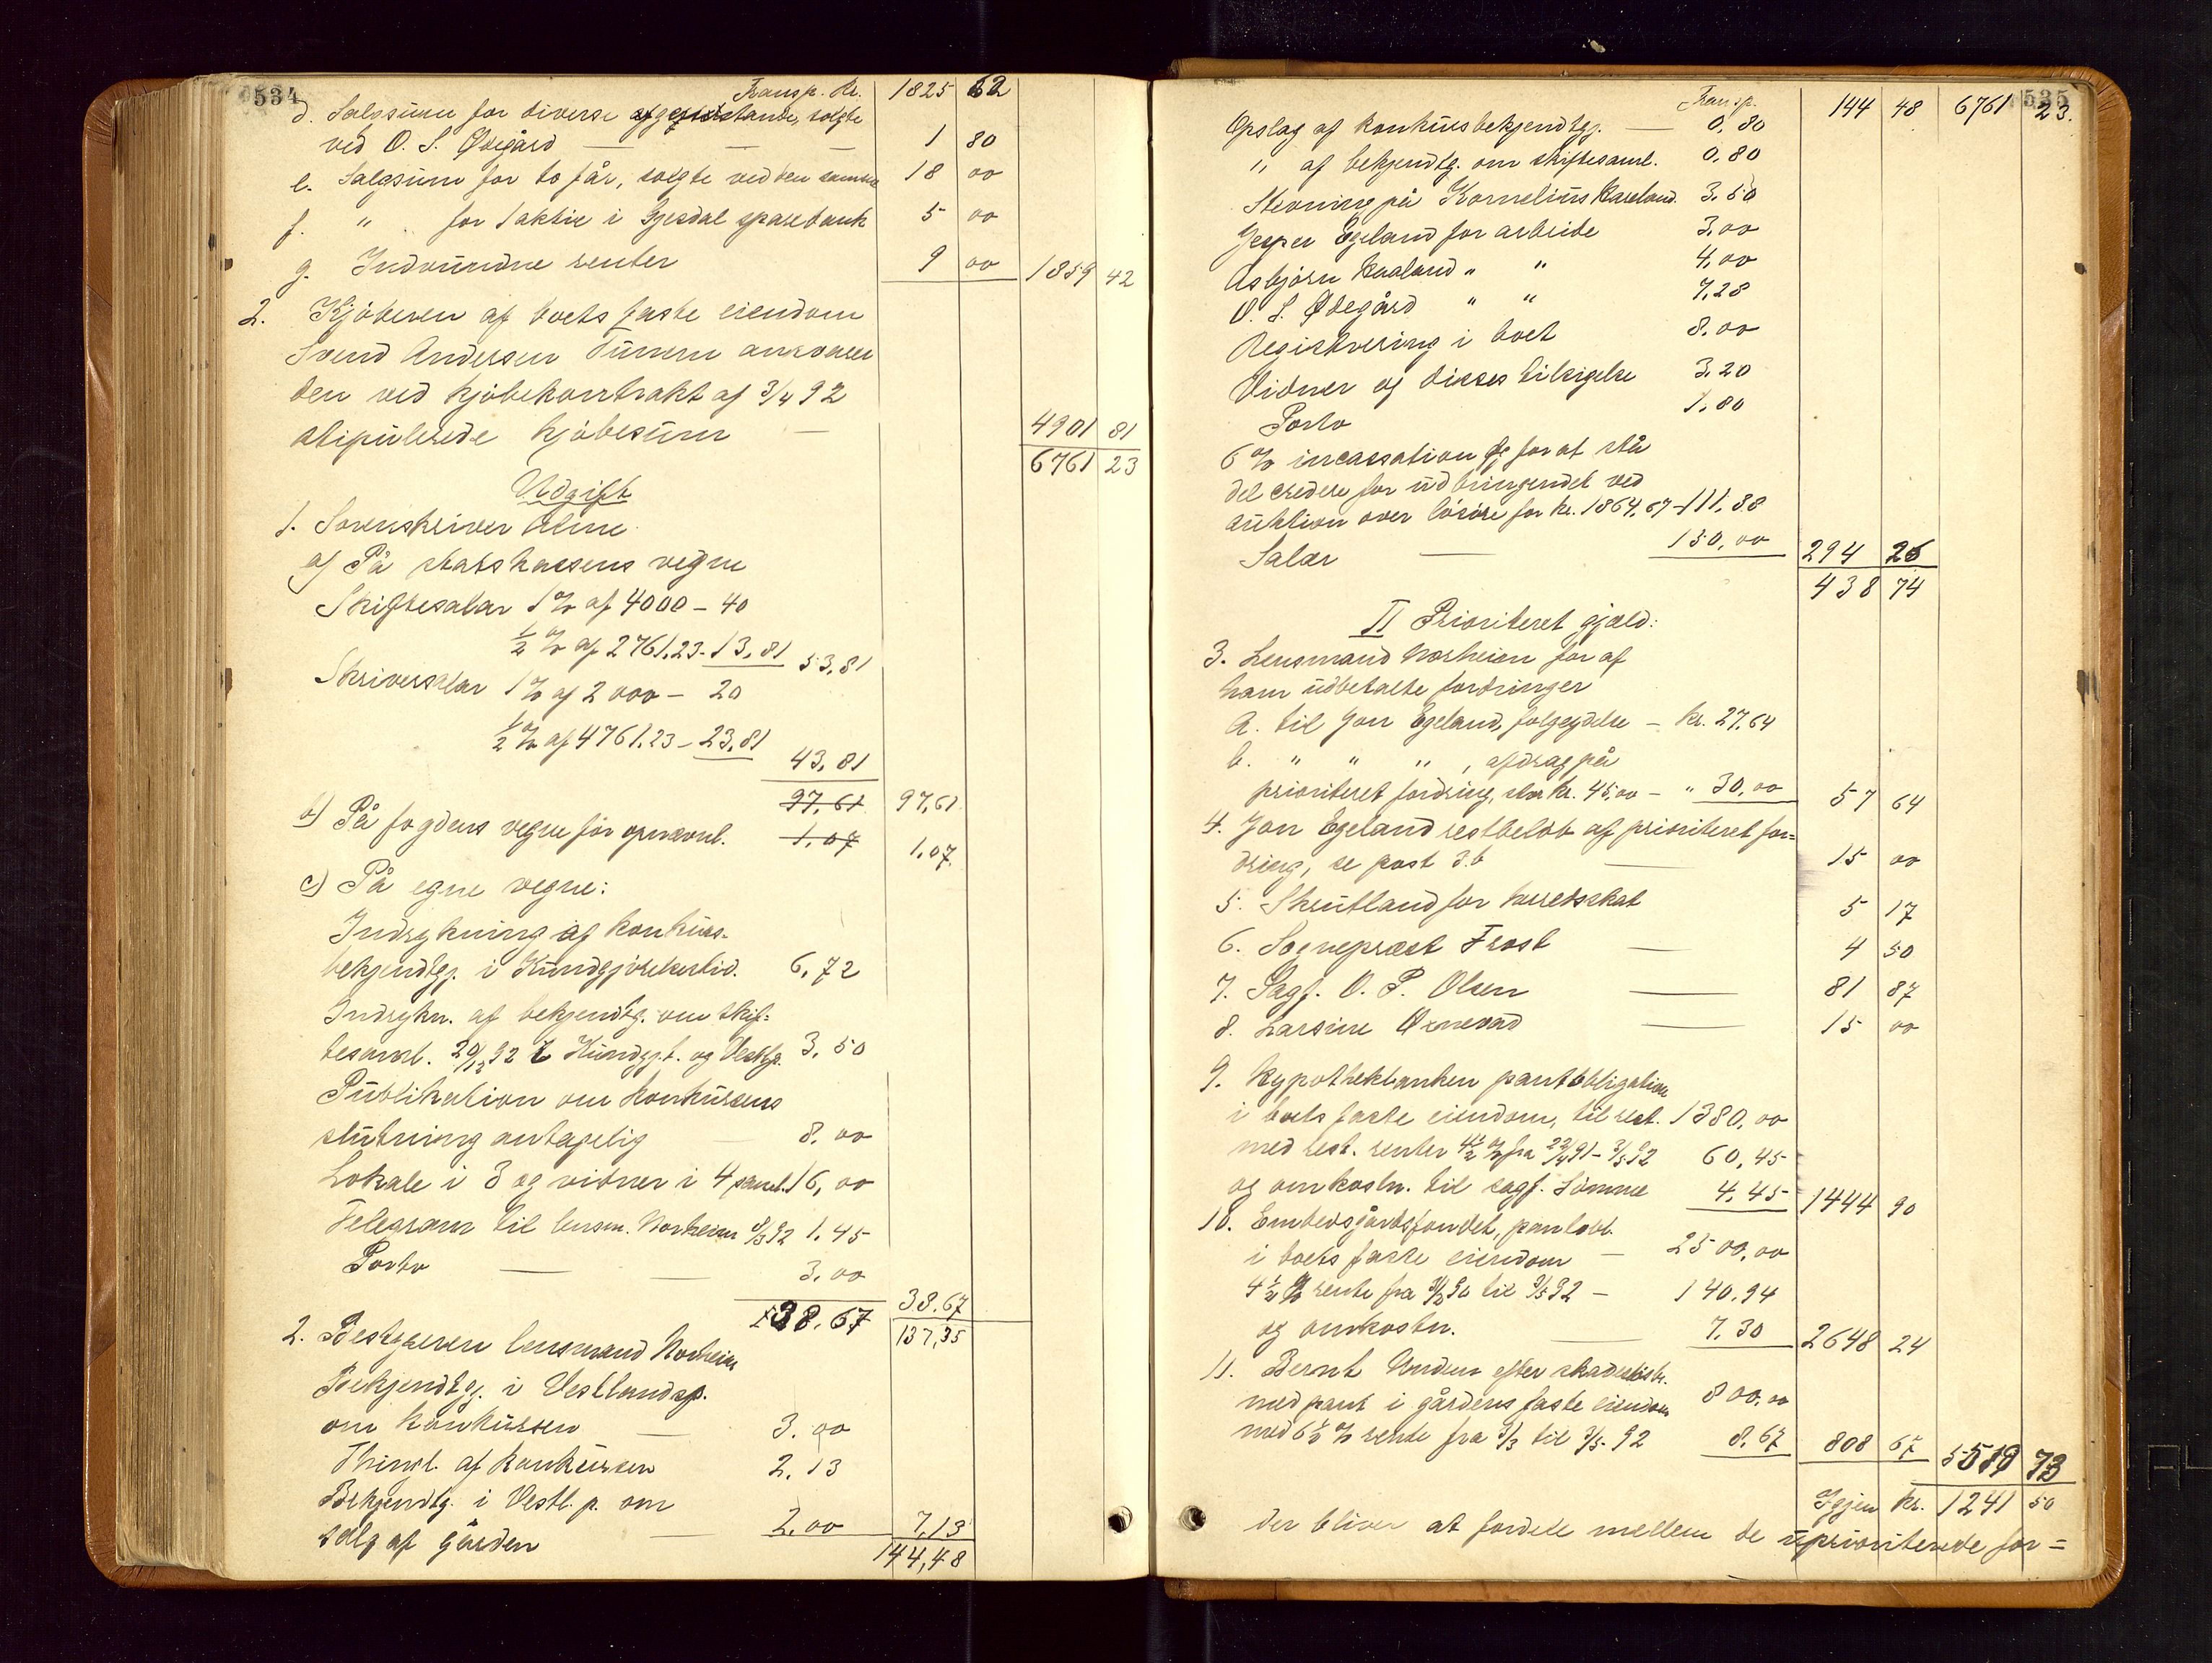 534
Transp. Kr. 1825 62
d. Salgssum for diverse gjenstande, solgte
ved O. S. Ødegård — — — 1 80
e. Salgssum for to får, solgte ved den samme 18 00
f. " for 1 aktie i Gjesdal sparebank 5 00
g. Indvundne renter 9 00 1859 42
2. Kjöberen af boets faste eiendom
Svend Andersen ansvarer
den ved kjöbekontrakt af 3/4 92
stipulerede kjöbesum — 4901 81
6761 23
Udgift
1. Sorenskriver
a) På statskassens vegne
Skiftesalær 1 % af 4000 – 40
½ % af 2761.23 – 13,81 53,81
Skriversalær 1 % af 2000 – 20
½ % af 4761.23 – 23,81
43,81
97,61 97,61
b) På fogdens vegne for opnævnl. 1,07 1,07
c) På egne vegne:
Indrykning af konkurs-
bekjendtgj. i Kundgjörelsestid. 6,72
Indrykn. af bekjendtg. om skif-
tesaml. 20/12 92 i Kundgj.t. og Vestlp. 3,50
Publikation om konkursens
slutning antagelig — 8,00
Lokale i 3 og vidner i 4 saml. 16,00
Telegram til lensm. Norheim 8/3 92 1,45
Porto — — 3,00
38.67 38.67
137,35
2. Bestyreren lensmand Norheim
Bekjendtgj. i Vestlandsp.
om konkursen — 3.00
Thingl. af konkursen 2.13
Bekjendtg. i Vestl.p. om
salg af gården — 2.00 7,13
144,48
535
Transp. 144 48 6761 23.
Opslag af konkursbekjendtgj. — 0,80
" af bekjendtg. om skiftesaml. 0,80
Stevning på Kornelius Kaeland 3,50
Jesper Egeland for arbeide 3,00
Asbjörn Kaaland " " 4,00
O. S. Ødegård " " 7,28
Registrering i boet 8.00
Vidner og disses tilsigelse 3.20
Porto 1,80
6 % incassation & for at stå
del credere for udbringendet ved
auktion over lösöre for kr. 1864,67 – 111,88
Salær — 150,00 294 26
438 74
II Prioriteret gjæld:
3. Lensmand Norheim for af
ham udbetalte fordringer
a. til Jon Egeland, folgeydelse – kr. 27,64
b. " " " , afdrag på
prioriteret fordring, stor kr. 45,00 – " 30,00 57 64
4. Jon Egeland restbelöb af prioriteret for=
dring, se post 3.b — 15 00
5. Skrutland for herredsskat 5 17
6. Sognepræst Frost — 4 50
7. Sagf. O. P. Olsen — 81 87
8. Larsine Oxnevad — 15 00
9. Hypothekbanken pantobligation
i boets faste eiendom, til rest. 1380,00
med rest. renter 4½ % fra 22/4 91 – 3/5 92 60,45
og omkostn. til sagf. Sömme 4,45 1444 90
10. Embedsgårdsfondet, pantobl.
i boets faste eiendom — 2500,00
4½ % rente fra til 3/5 92 — 140.94
og omkostn. — 7.30 2648 24
11. Bernt efter skadeslösbr.
med pant i gårdens faste eiendom 800.00
med 6½ % rente fra 3/3 til 3/5 92 8.67 808 67 5519 73
Igjen kr. 1241 50
der bliver at fordele mellem de uprioriterede for=